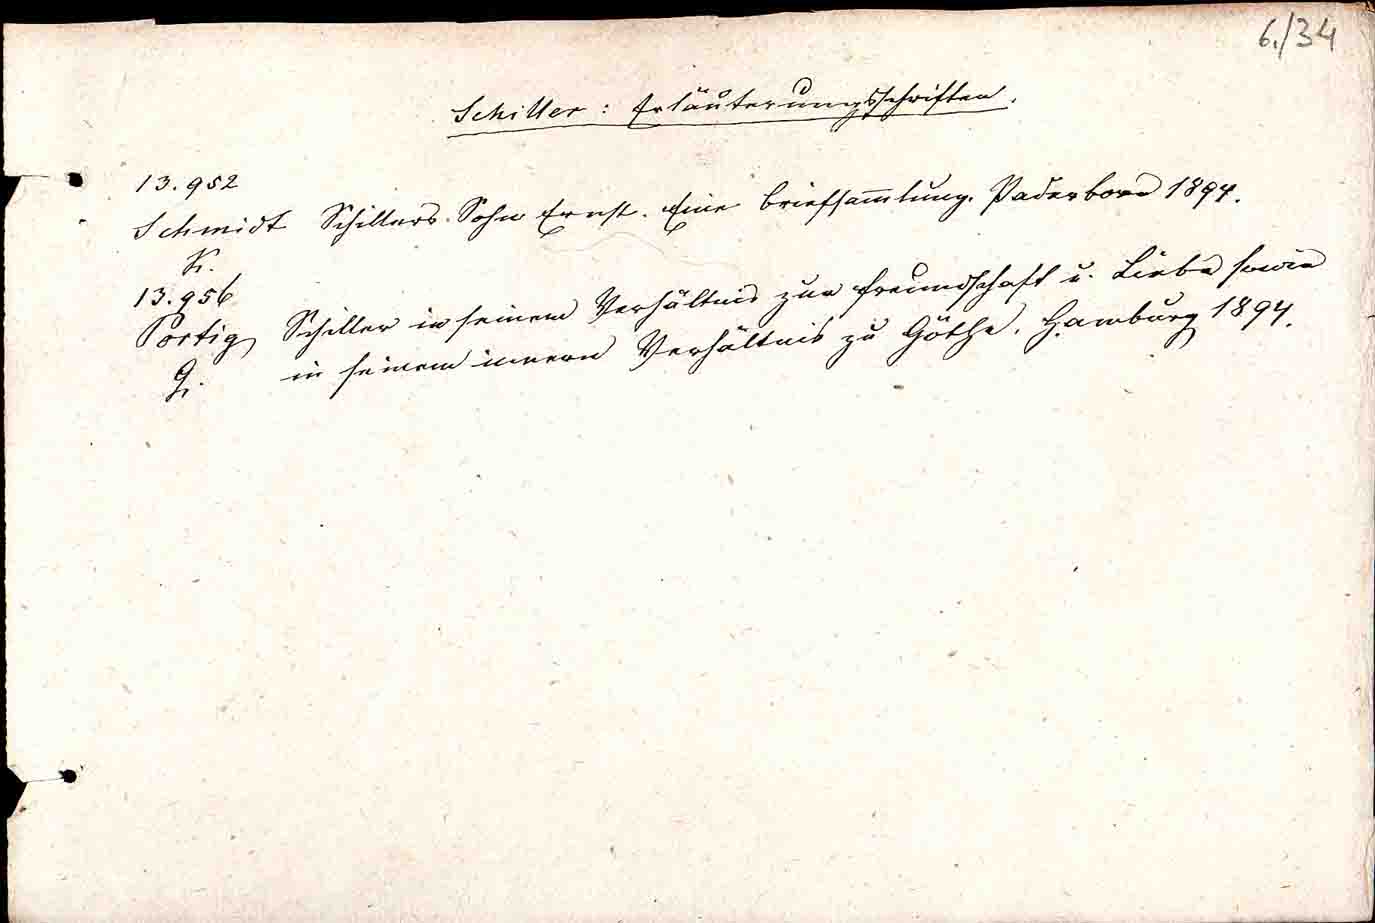 6./34
Schiller: Erläuterungsschriften.
13.952
Schmidt Schillers Sohn Ernst. Eine Briefsam̅lung. Paderborn 1894.
K.
13.956
Portig Schiller in seinem Verhältnis zur Freundschaft u. Liebe sowie
G. in seinem innern Verhältnis zu Göthe. Hamburg 1894.